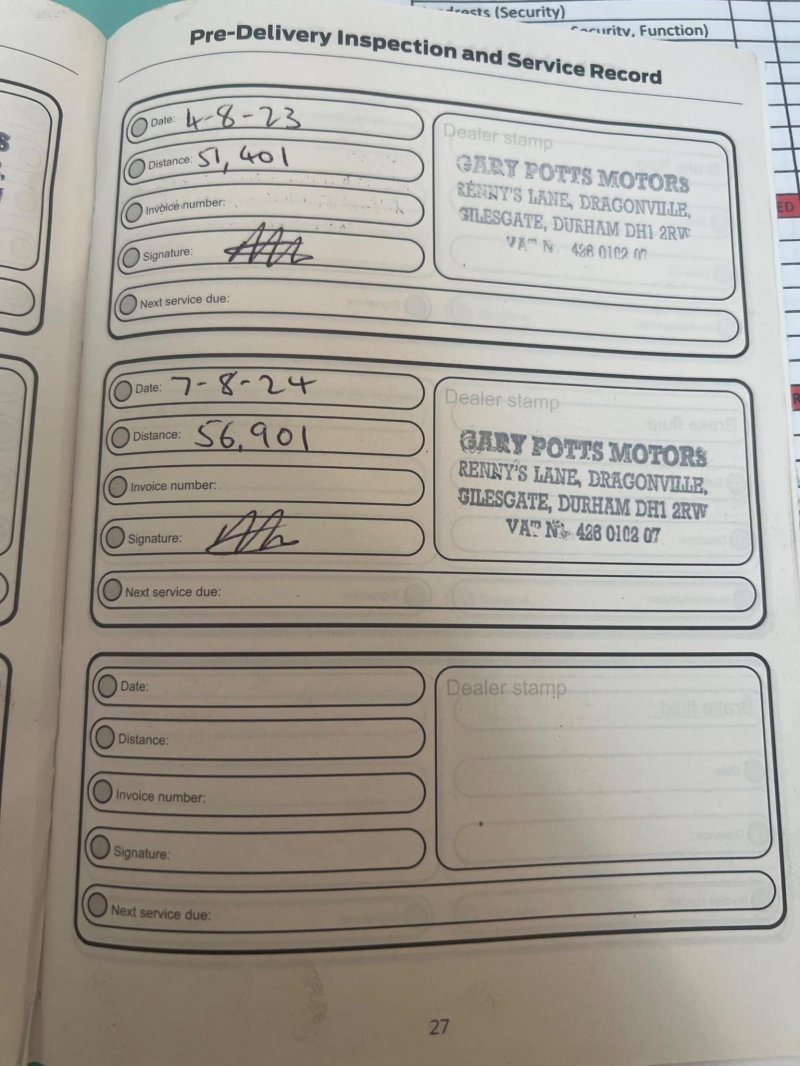 drests (Security)
Security, Function)
Pre-Delivery Inspection and Service Record
Date: 4-8-23
Distance: 51,401
Invoice number:
Signature:
Next service due:
Dealer stamp
GARY POTTS MOTORS
RENNY'S LANE, DRAGONVILLE,
GILESGATE, DURHAM DH1 2RW
VAT N. 426 0102 07
Date: 7-8-24
Distance: 56,901
Invoice number:
Signature:
Next service due:
Dealer stamp
GARY POTTS MOTORS
RENNY'S LANE, DRAGONVILLE,
GILESGATE, DURHAM DH1 2RW
VAT No. 426 0102 07
Date:
Distance:
Invoice number:
Signature:
Next service due:
Dealer stamp
27